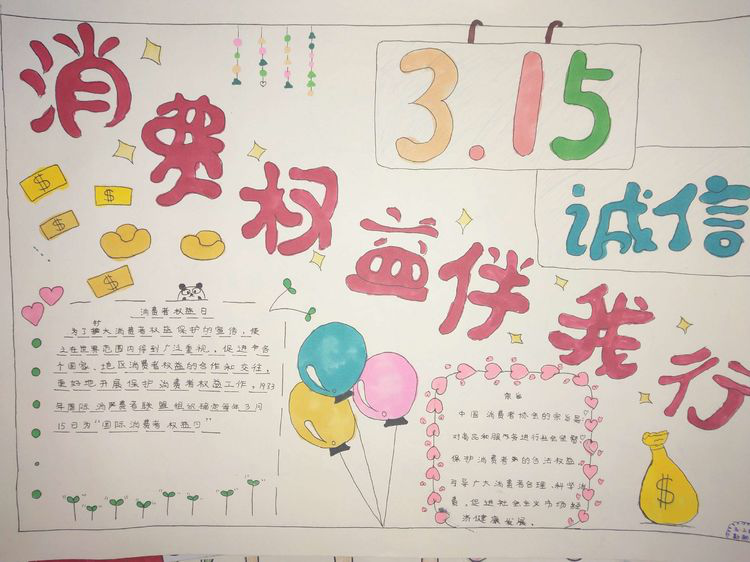 3.15
诚信
消费权益伴我行
消费者权益日
为了扩大消费者权益保护的宣传，使
之在世界范围内得到广泛重视，促进各
个国家、地区消费者权益的合作和交往，
更好地开展保护消费者权益工作，1983
年国际消费者联盟组织确定每年3月
15日为“国际消费者权益日”
宗旨
中国消费者协会的宗旨是
对商品和服务进行社会监督，
保护消费者的合法权益，
引导广大消费者合理、科学消
费，促进社会主义市场经
济健康发展。
$
$
$
$
$